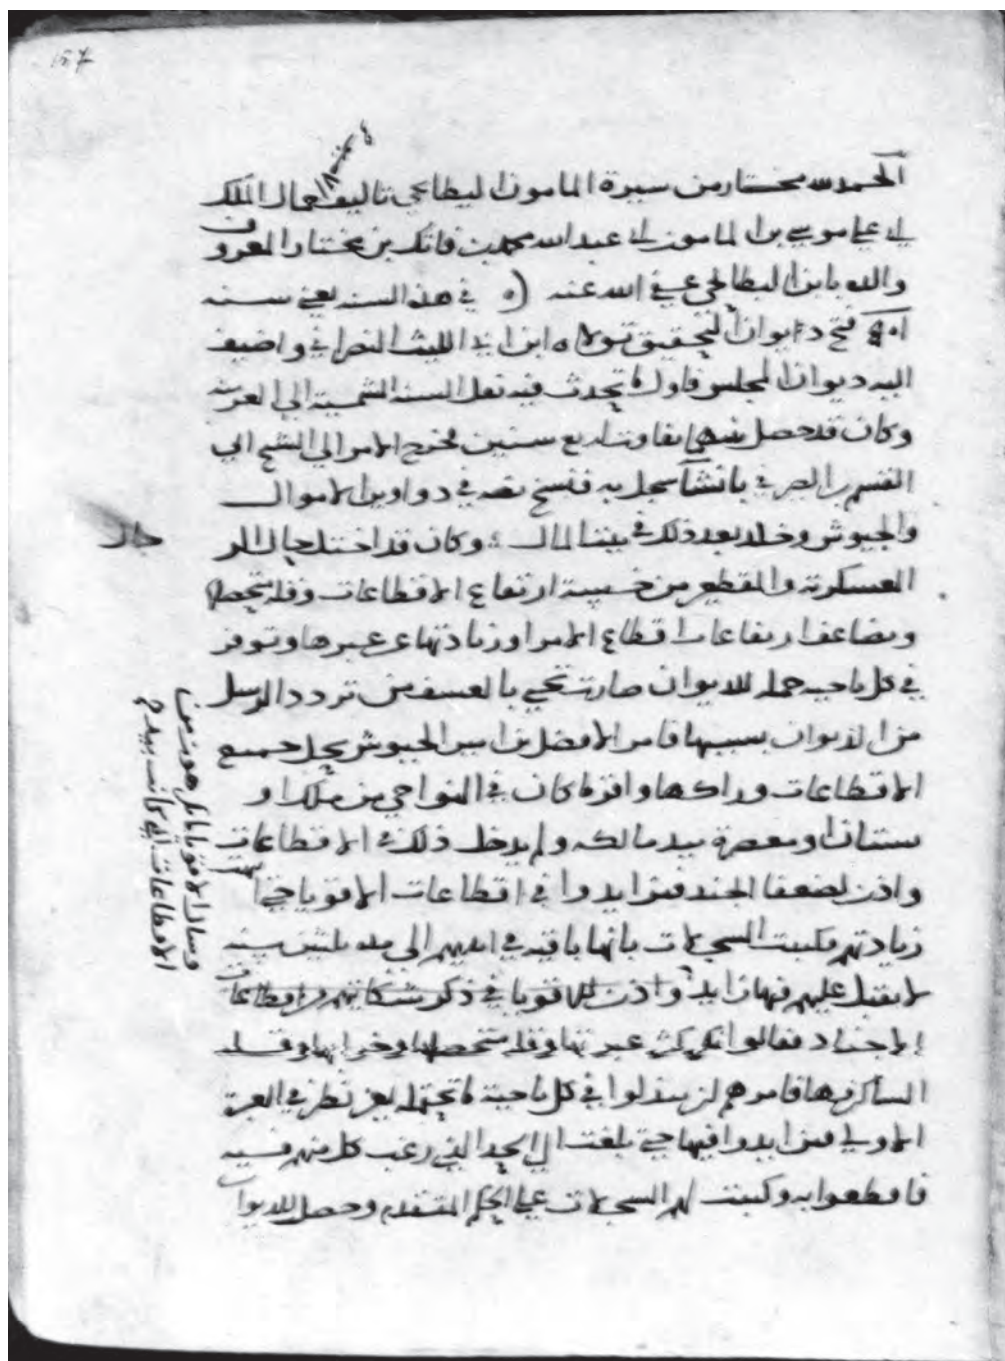 157
الحمد لله مختار من سيرة المامون البطائحي تاليف الامير جمال الملك
ابي علي موسى بن المامون ابي عبد الله محمد بن فاتك بن مختار المعروف
والده بابن البطايحي عفى الله عنه في هذه السنة يعني سنة
فتح ديوان التحقيق تولاه ابن ابي الليث النصراني واضيف
اليه ديوان المجلس فاول ما تحدث فيه نقل السنة الشمسية الى العربية
وكان قد حصل بينهما تفاوت اربع سنين فخرج الامر الى الشيخ ابي
القسم بن الصيرفي بانشا سجل به فنسخ نصه في دواوين الاموال
والجيوش وخلد بعد ذلك في بيت المال وكان قد اختل حال الر
جال
العسكرية والمقطعين من خسة ارتفاع الاقطاعات وقلة متحصلها
وتضاعف ارتفاعات اقطاع الامرا وزيادتها عن عبرها وتوفر
في كل ناحية جملة للديوان صارت تجبى بالعسف من تردد الرسل
من الديوان بسببها فامر الافضل بن امير الجيوش بحل جميع
الاقطاعات وراكها واقر ما كان في النواحي من ملك او
بستان او معصرة بيد مالكه ولم يدخل ذلك في الاقطاعات
واذن لضعفا الجند فتزايدوا في اقطاعات الاقويا حتى انتهت
زيادتهم فكتبت السجلات بانها باقية في ايديهم الى مدة ثلثين سنة
لا يقبل عليهم فيها زايد واذن للاقويا في ذكر شكايتهم من اقطاعات
الاجناد فقالوا تكثر عبرتها وقلة متحصلها وخرابها وقلة
الساكن بها فامرهم ان يبذلوا في كل ناحية ما تحتمله بغير نظر في العبرة
الاولى فتزايدوا فيها حتى بلغت الى الحد الذي رغب كل منهم فيه
فاقطعوا به وكتبت لهم السجلات على الحكم المتقدم وحصل للديوان
وسال الاقويا ما يكرهونه من
الاقطاعات التي كانت بيدهم